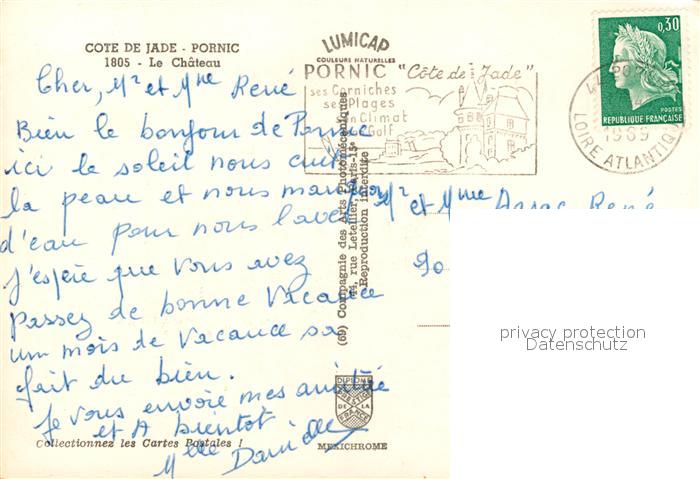 COTE DE JADE - PORNIC
1805 - Le Château
LUMICAP
COULEURS NATURELLES
PORNIC "Côte de Jade"
ses Corniches
ses Plages
son Climat
Golf
0,30
POSTES
REPUBLIQUE FRANÇAISE
44 PORNIC
1969
LOIRE ATLANTIQUE
Cher, Mr et Mme René
Bien le bonjour de Pornic
ici le soleil nous cuit
la peau et nous manquons
d'eau pour nous laver
j'espère que vous avez
Passez de bonne Vacance
un mois de Vacance sa
fait du bien.
Je vous envoie mes amitié
et A bientôt
Melle Danielle
Mr et Mme René
90
(69) Compagnie des Arts Photomécaniques
44, rue Letellier, Paris-15e
Reproduction interdite
DIPLOME
PRESTIGE
DE LA
FRANCE
MEXICHROME
Collectionnez les Cartes Postales !
privacy protection
Datenschutz